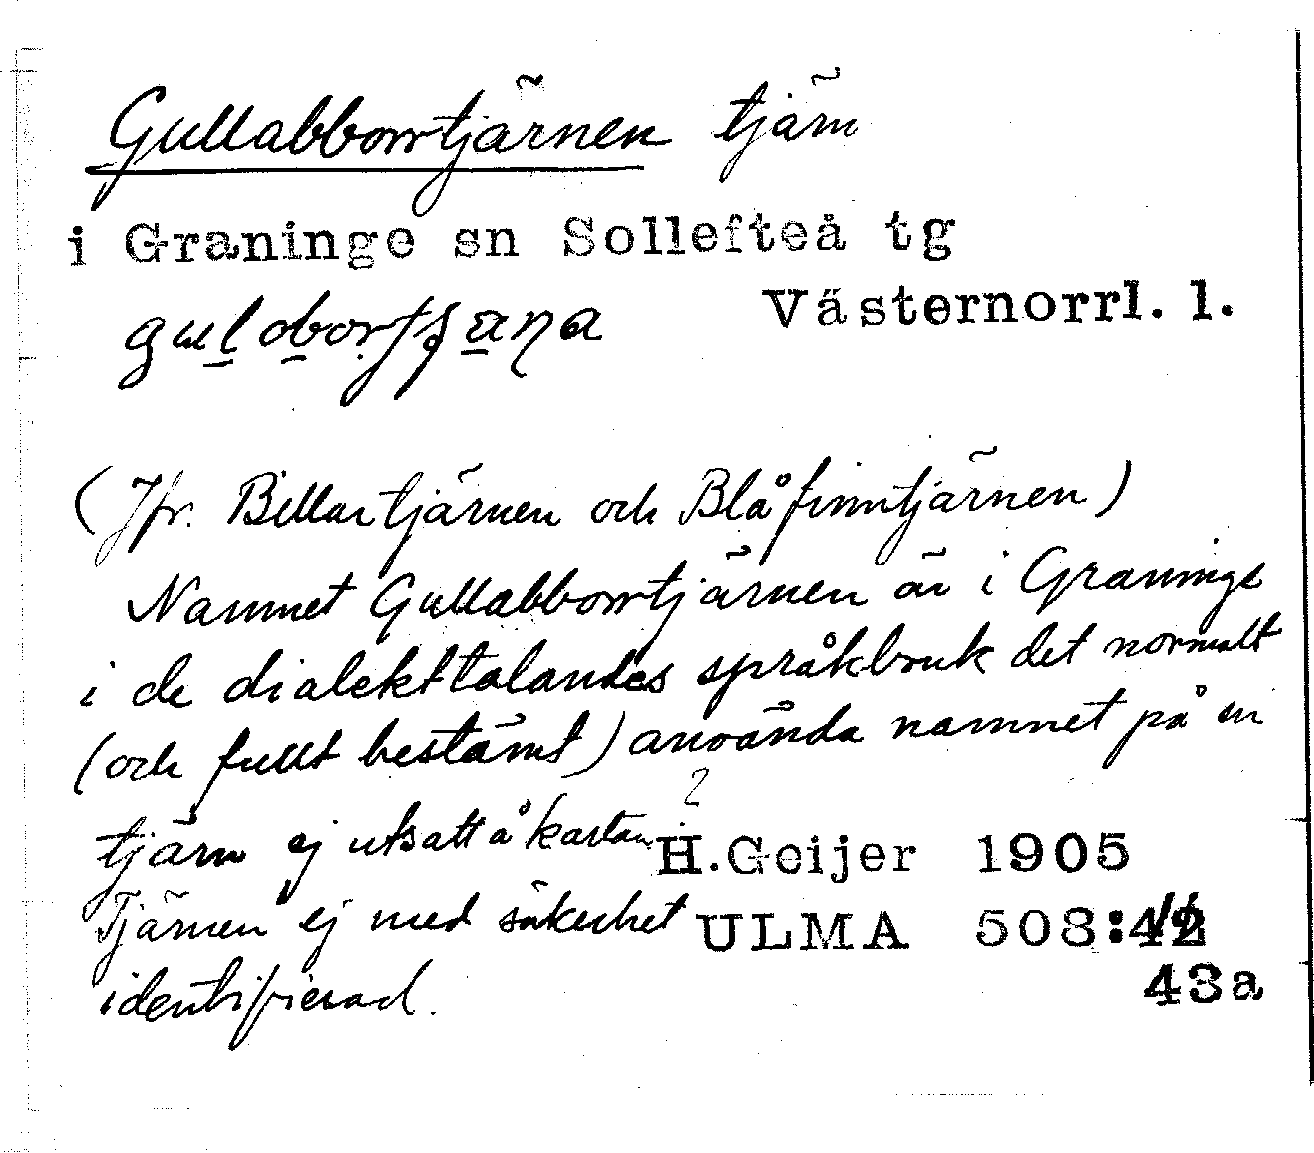 Gullabborrtjärnen tjärn
i Graninge sn Sollefteå tg
Västernorrl. l.
(Jfr. Billartjärnen och Blåfinntjärnen)
Namnet Gullabborrtjärnen är i Graninge
i de dialekttalandes språkbruk det normalt
(och fullt bestämt) använda namnet på en
tjärn ej utsatt å kartan. ?
H. Geijer 1905
Tjärnen ej med säkerhet
ULMA 508:42
identifierad.
43a